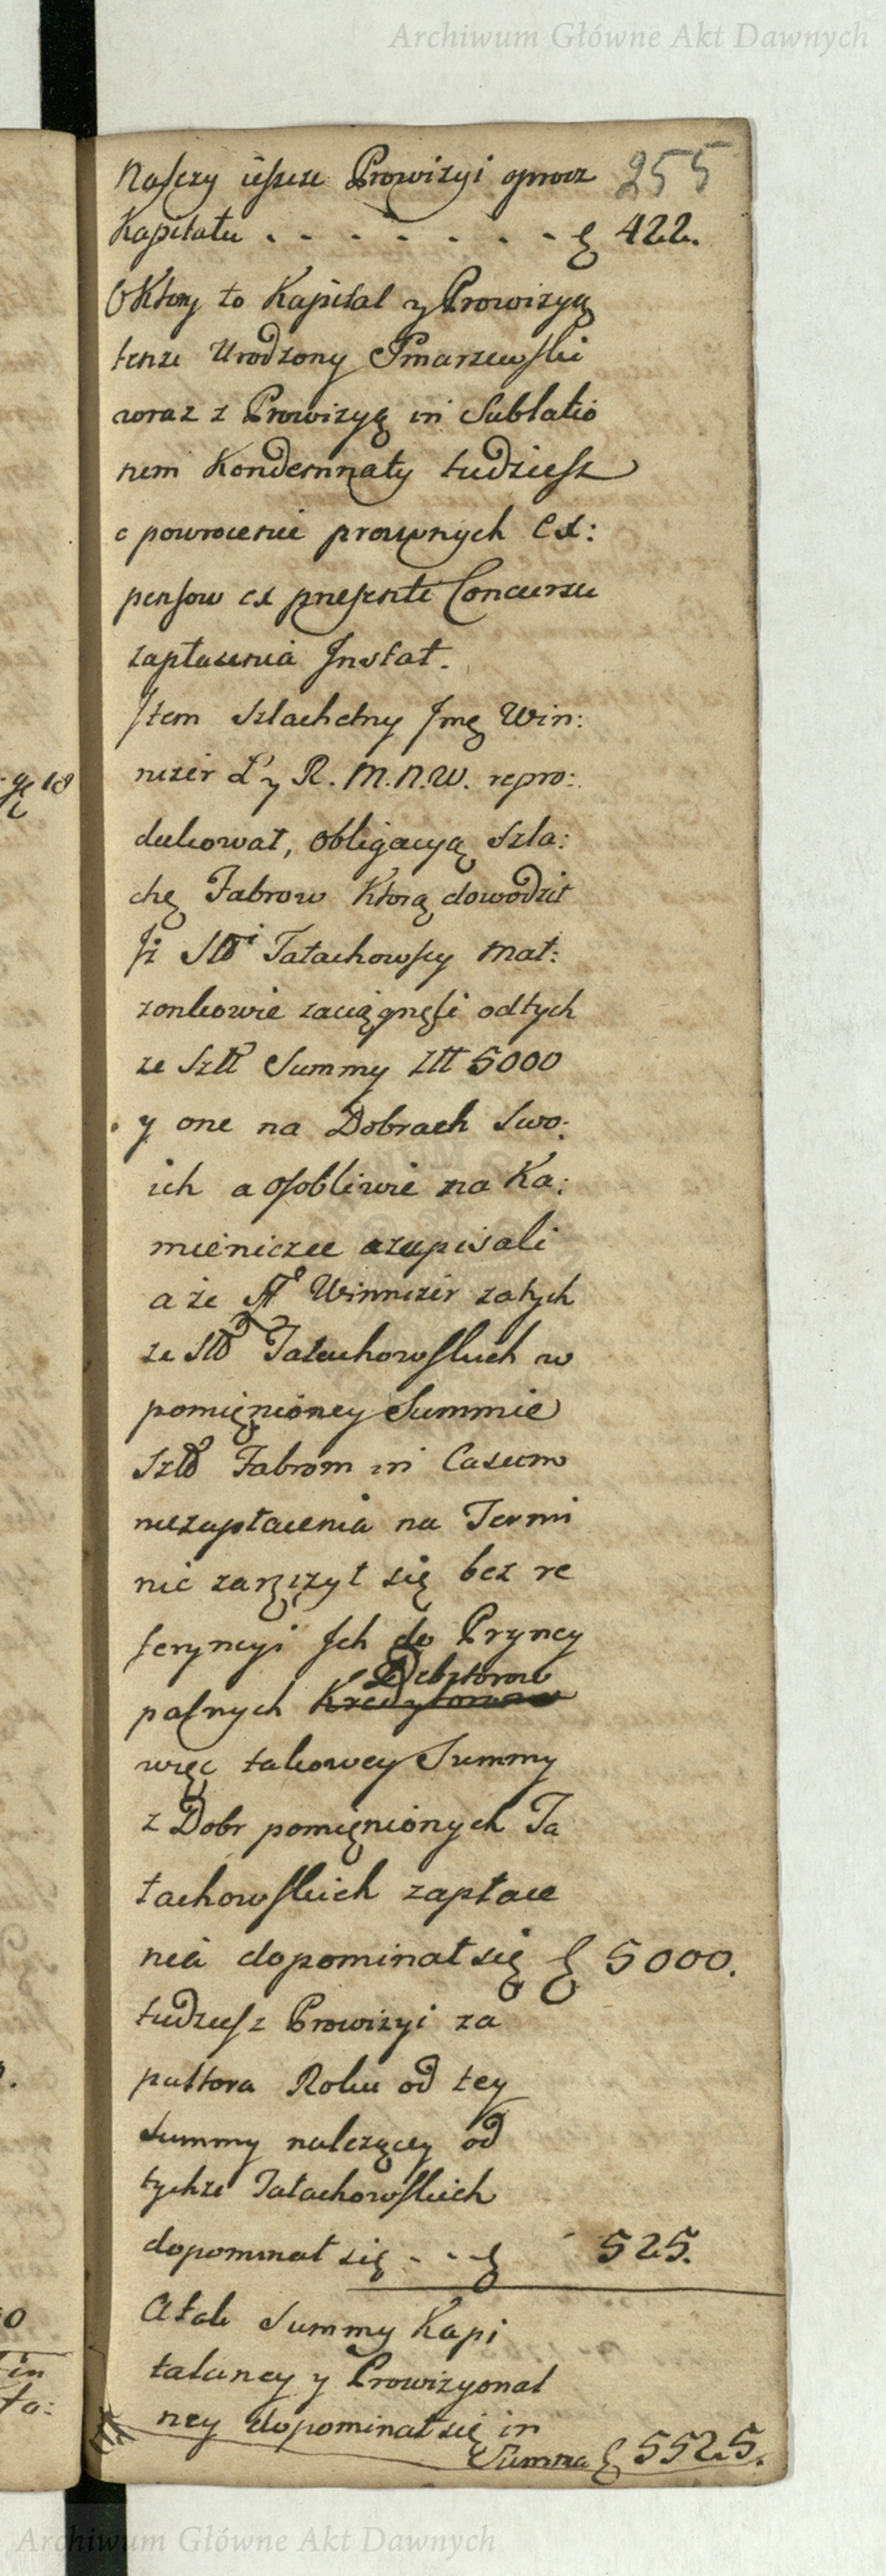 Archiwum Główne Akt Dawnych
255
Należy ieszcze Prowizyi oprocz
Kapitału . - - - - - - - f 422.
O Ktory to Kapitał y Prowizyą
tenze Urodzony Pmarzewski
wraz z Prowizyą in Sublatio
nem Kondemnaty tudziesz
o powrocenie prawnych Ex:
pensow ex presente Concursu
zapłacenia Instat.
Item Szlachetny Jmę Win:
nizer Ł y R. M.N.W. repro:
dukował, obligacyą Szla:
chę Fabrow Ktorą dowodził
Jż Słł Tałachowscy Mał:
zonkowie zaciągneli od tych
ze Szłł Summy Złł 5000
y one na Dobrach Swo:
ich a osobliwie na Ka:
mieniczce zapisali
a że Winnizer za tych
ze Tałachowskich w
pomięnioney Summie
Szłł Fabrom in Casum
niezapłacenia na Termi
nie zaręczył się bez re
feryncyi Jch do Pryncy
Debitorow
palnych Kredytorow
więc takowey Summy
z Dobr pomięnionych Ta
łachowskich zapłace
nia dopominał się f 5000.
tudziesz Prowizyi za
pułtora Roku od tey
Summy należącey od
tychze Tałachowskich
dopominał się - - - f 525.
A tak Summy Kapi
talnney y Prowizyonal
ney dopominał się in
Summa f 5525.
18
0
in
ta:
Archiwum Główne Akt Dawnych